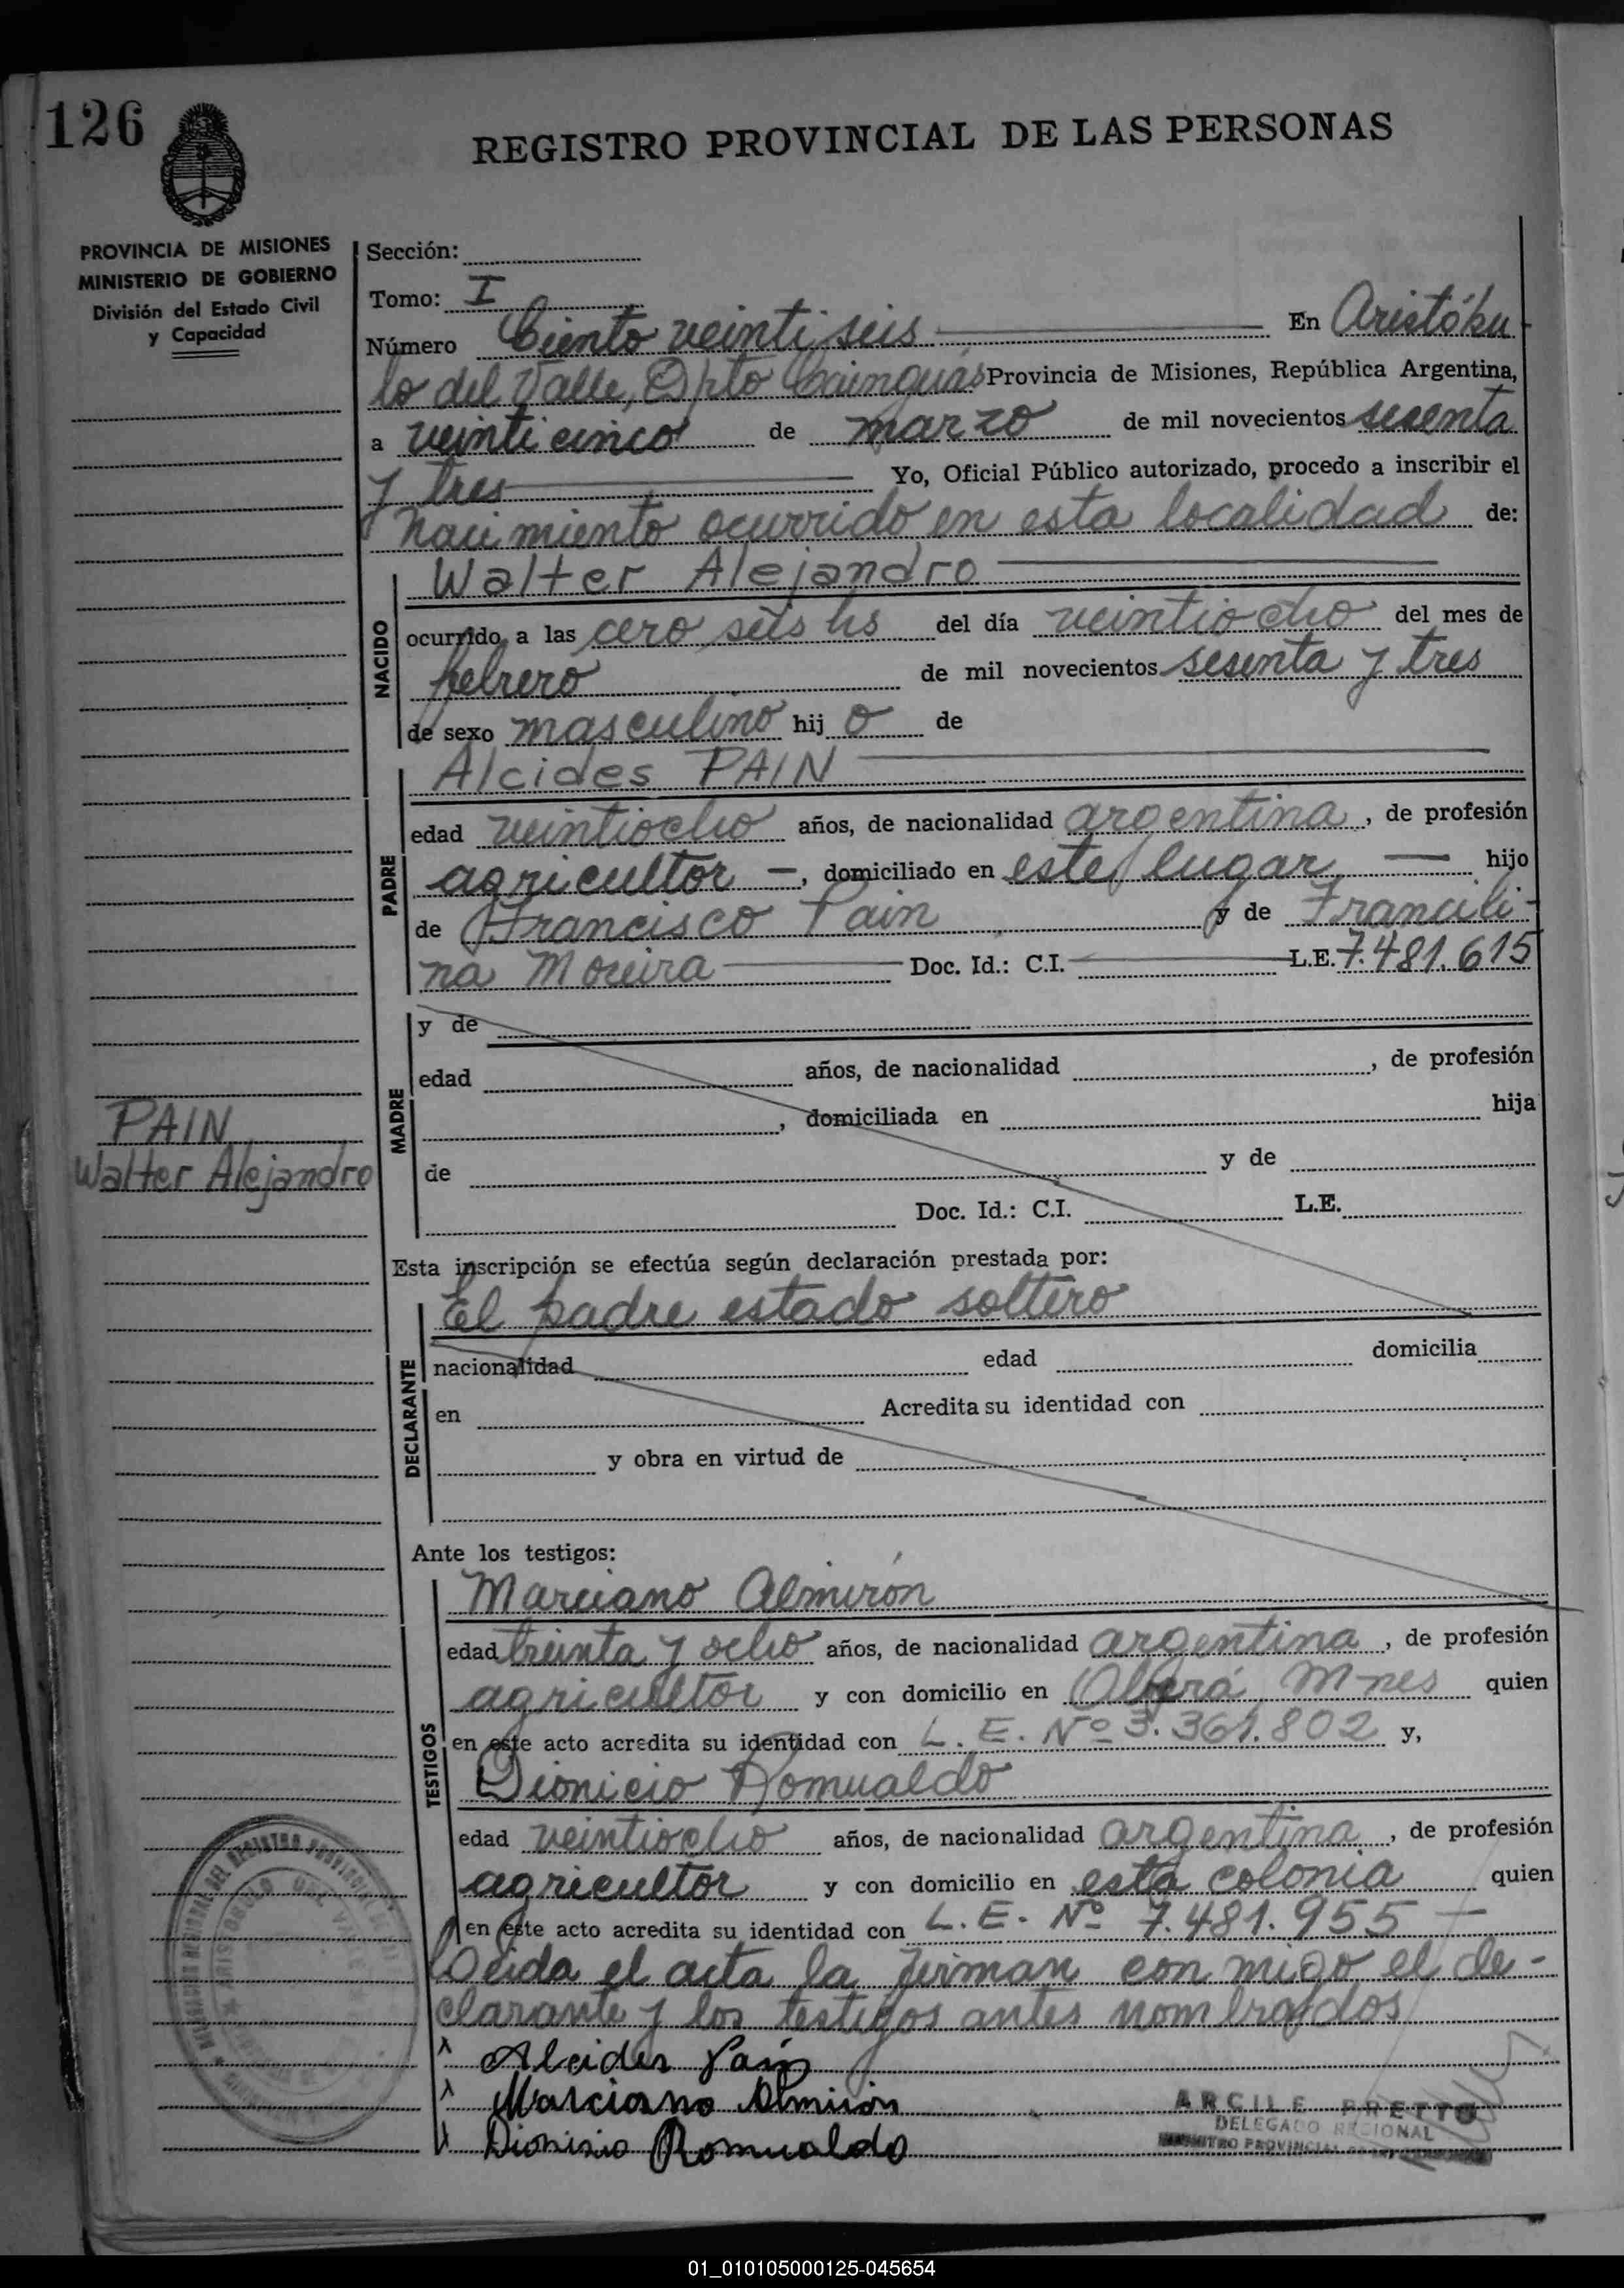 126
REGISTRO PROVINCIAL DE LAS PERSONAS
PROVINCIA DE MISIONES
MINISTERIO DE GOBIERNO
División del Estado Civil
y Capacidad
Sección:
Tomo: I
Número Ciento veinti seis En Aristóbu-
lo del Valle, Dpto Cainguás Provincia de Misiones, República Argentina,
a veinticinco de marzo de mil novecientos sesenta
y tres Yo, Oficial Público autorizado, procedo a inscribir el
nacimiento ocurrido en esta localidad de:
NACIDO
Walter Alejandro
ocurrido a las cero seis hs del día veintiocho del mes de
febrero de mil novecientos sesenta y tres
de sexo masculino hij o de
PADRE
Alcides PAIN
edad veintiocho años, de nacionalidad argentina, de profesión
agricultor –, domiciliado en este lugar — hijo
de Francisco Pain y de Francili-
na Moreira Doc. Id.: C.I. L.E. 7.481.615
MADRE
y de
edad años, de nacionalidad , de profesión
, domiciliada en hija
de y de
Doc. Id.: C.I. L.E.
PAIN
Walter Alejandro
Esta inscripción se efectúa según declaración prestada por:
DECLARANTE
El padre estado soltero
nacionalidad edad domicilia
en Acredita su identidad con
y obra en virtud de
Ante los testigos:
TESTIGOS
Marciano Almirón
edad treinta y ocho años, de nacionalidad argentina, de profesión
agricultor y con domicilio en Oberá Mnes quien
en este acto acredita su identidad con L. E. Nº 3.361.802 y,
Dionicio Romualdo
edad veintiocho años, de nacionalidad argentina, de profesión
agricultor y con domicilio en esta colonia quien
en este acto acredita su identidad con L. E. Nº 7.481.955 –
Leida el acta la firman con migo el de-
clarante y los testigos antes nombrados
Alcides Pain
Marciano Almirón
Dionisio Romualdo
ARCILE PRETTO
DELEGADO REGIONAL
01_010105000125-045654